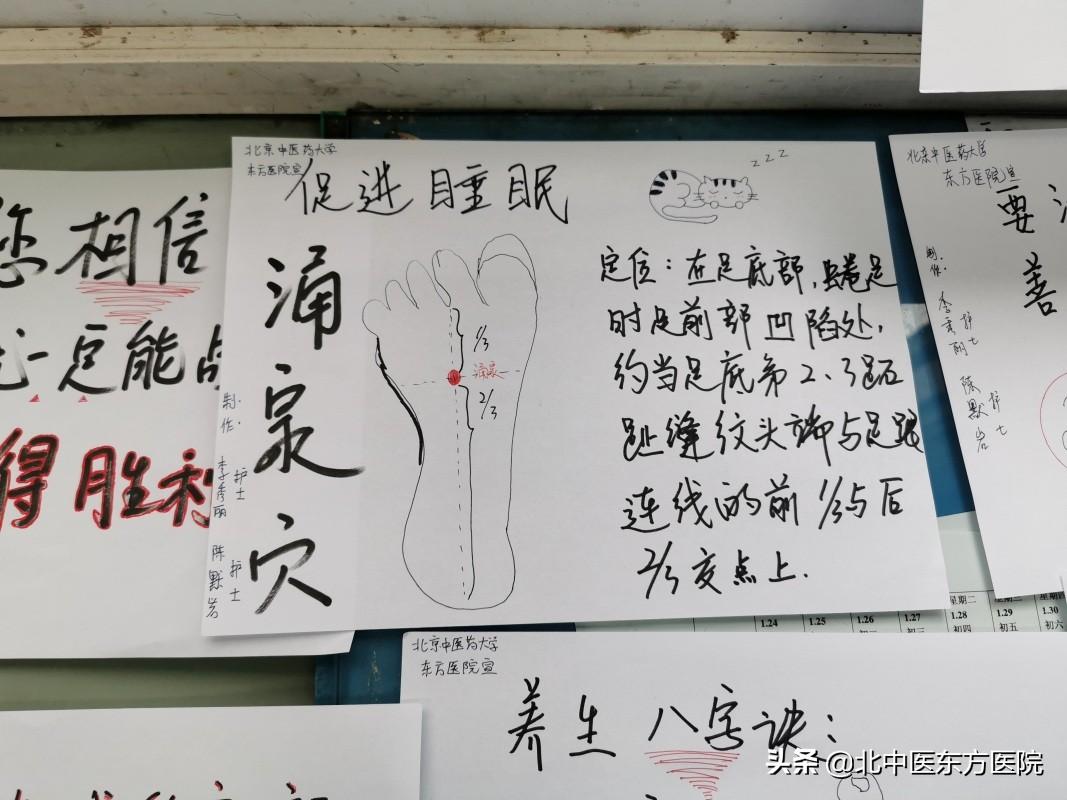 北京中医药大学
东方医院宣
促进睡眠
z z z
涌泉穴
制作:
李秀丽 护士
陈默岩 护士
1/3
涌泉
2/3
定位:在足底部,蜷足
时足前部凹陷处,
约当足底第2、3跖
趾缝纹头端与足跟
连线的前1/3与后
2/3交点上.
您相信
心一定能占
得胜利
北京中医药大学
东方医院宣
要
善
制作:
李秀丽 护士
陈默岩 护士
星期二
1.24
1.25
1.26
1.27
1.28
1.29
1.30
初四
初五
初六
北京中医药大学
东方医院宣
养生八字诀:
头条 @北中医东方医院